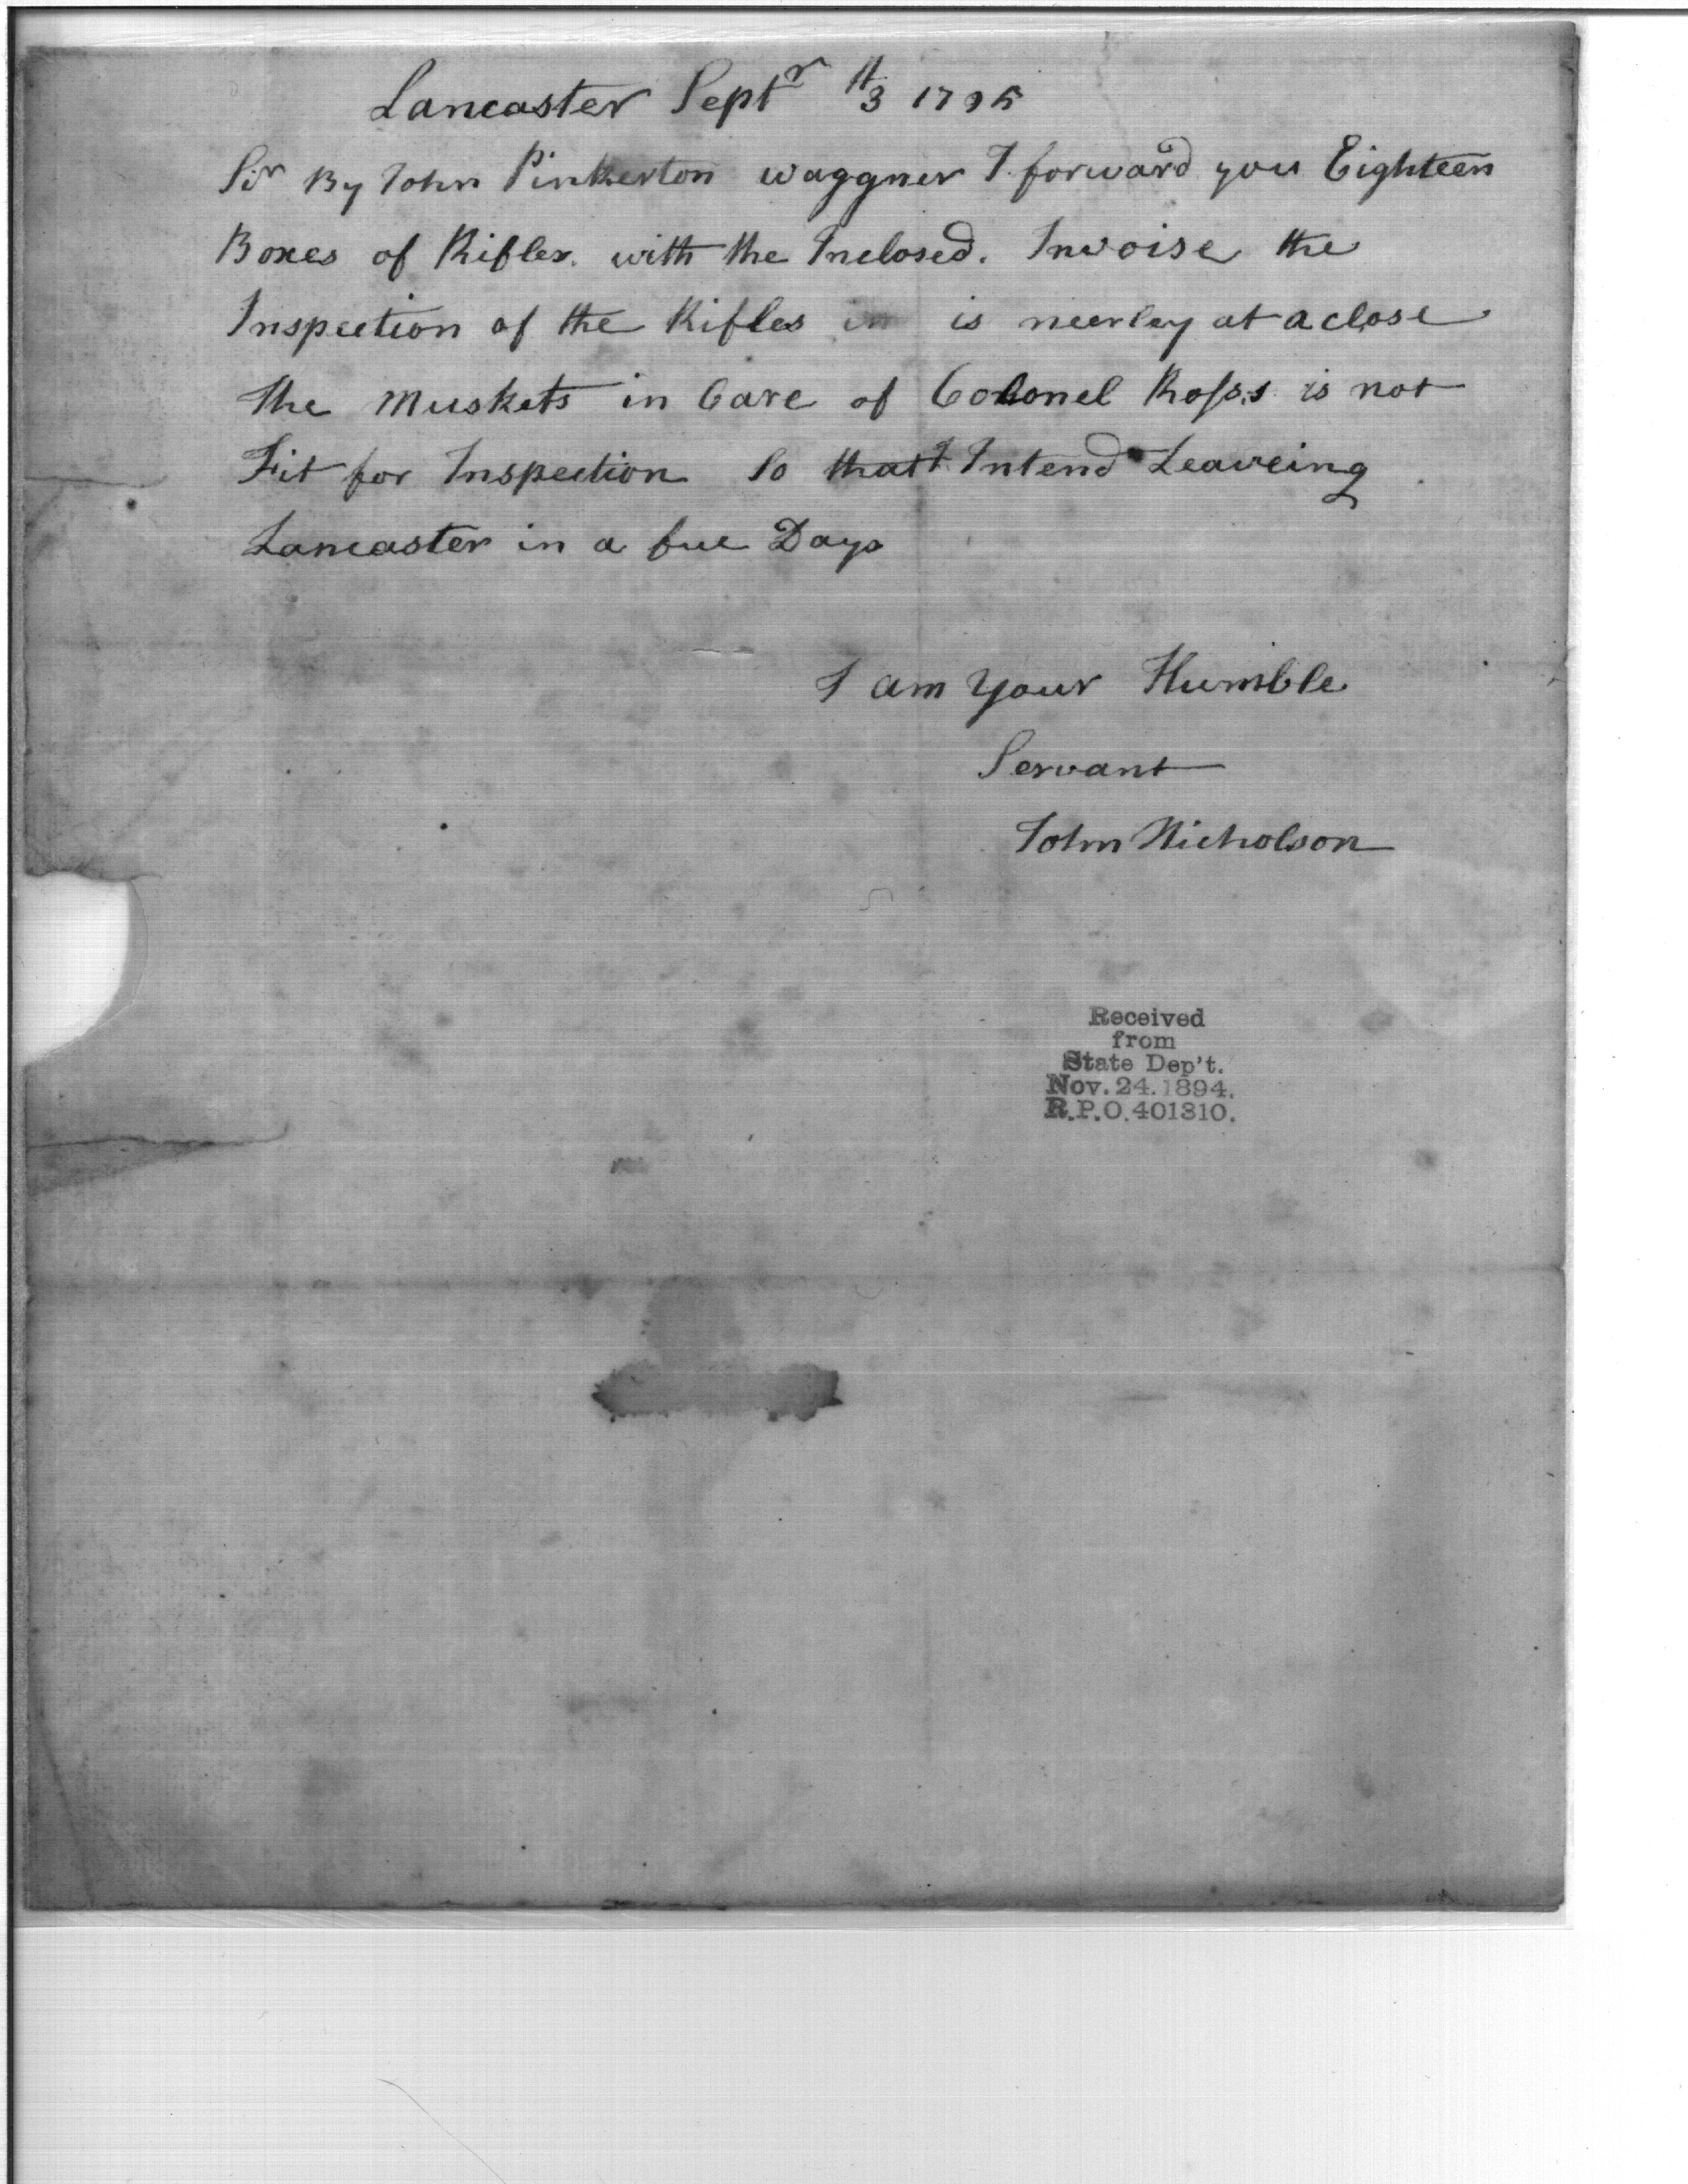 Lancaster Septr 3th 1795
Sir By John Pinkerton waggner I forward you Eighteen
Boxes of Rifles. with the Inclosed. Invoise the
Inspection of the Rifles in is neerley at a close
the Muskets in Care of Colonel Ross.s is not
Fit for Inspection So that I Intend Leaveing
Lancaster in a fue Days
I am your Humble
Servant
John Nicholson
Received
from
State Dep't.
Nov. 24. 1894.
R.P.O. 401310.